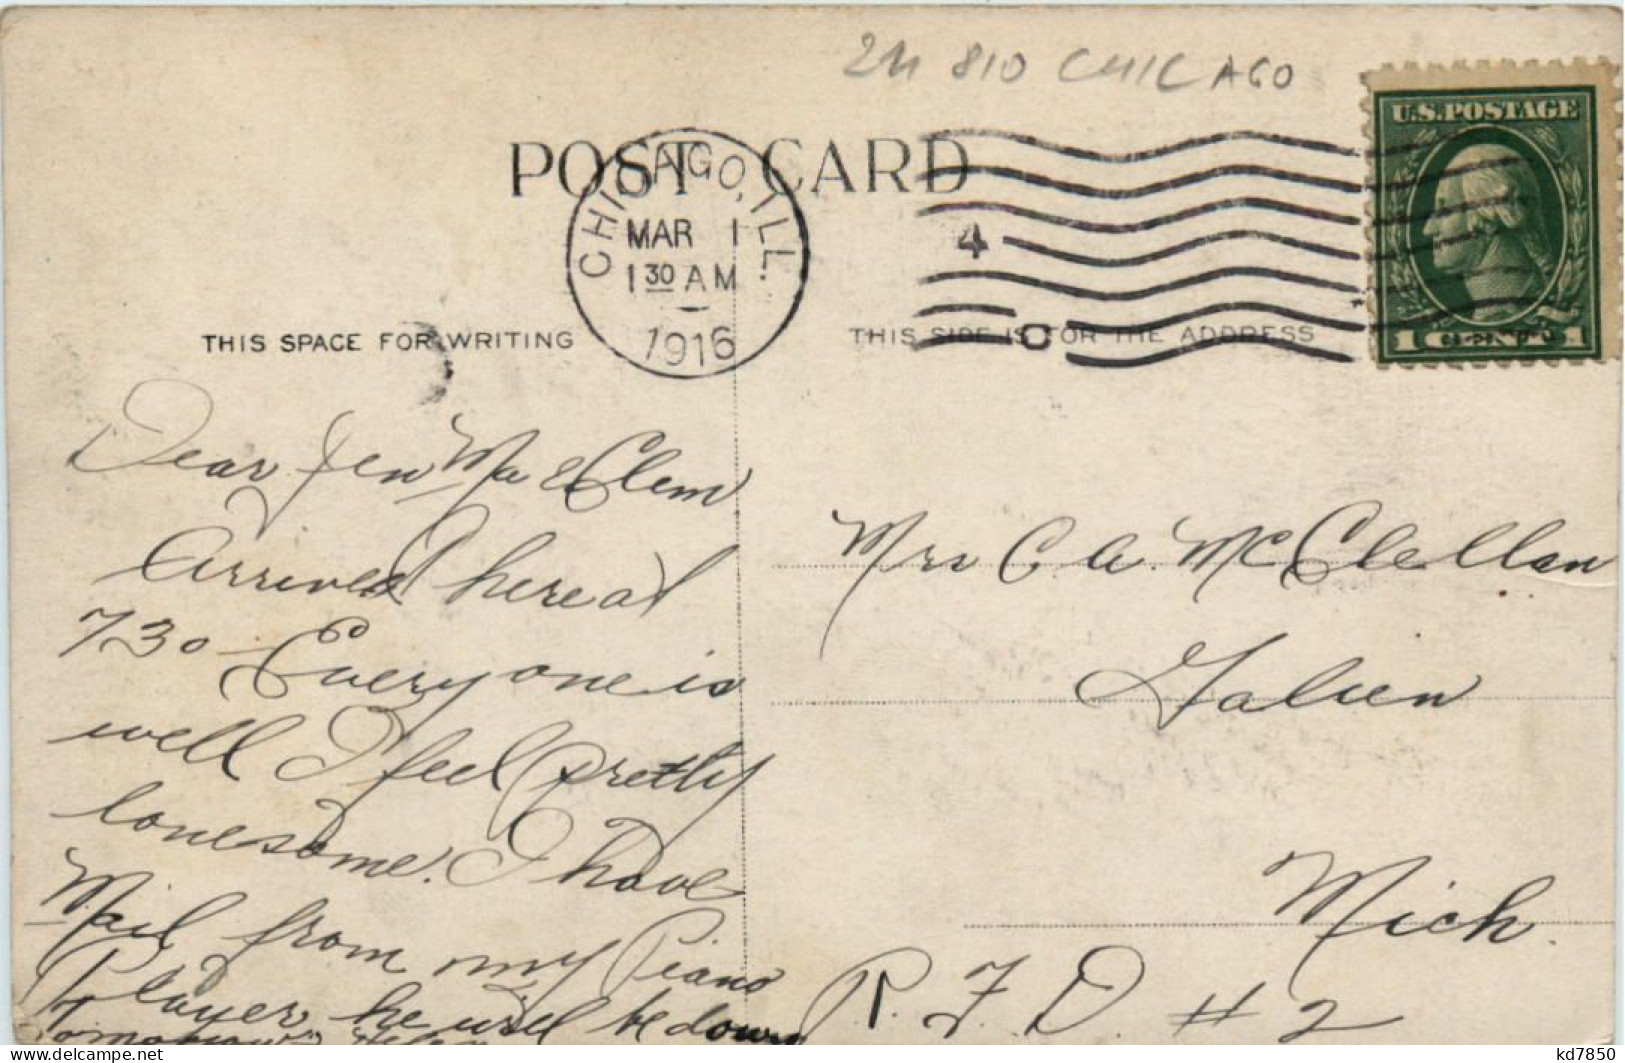 2M 810 CHICAGO
U.S. POSTAGE
POST CARD
CHICAGO, ILL.
MAR 1
1 30 AM
1916
4
THIS SPACE FOR WRITING
THIS SIDE IS FOR THE ADDRESS
1 CENT 1
Dear Jen Ma & Clem
Arrived here at
730 Everyone is
well I feel pretty
lonesome. I have
Mail from my Piano
Player he will be down
tomorrow
Mrs C A. McClellan
Galien
Mich.
R. F. D. # 2
kd7850